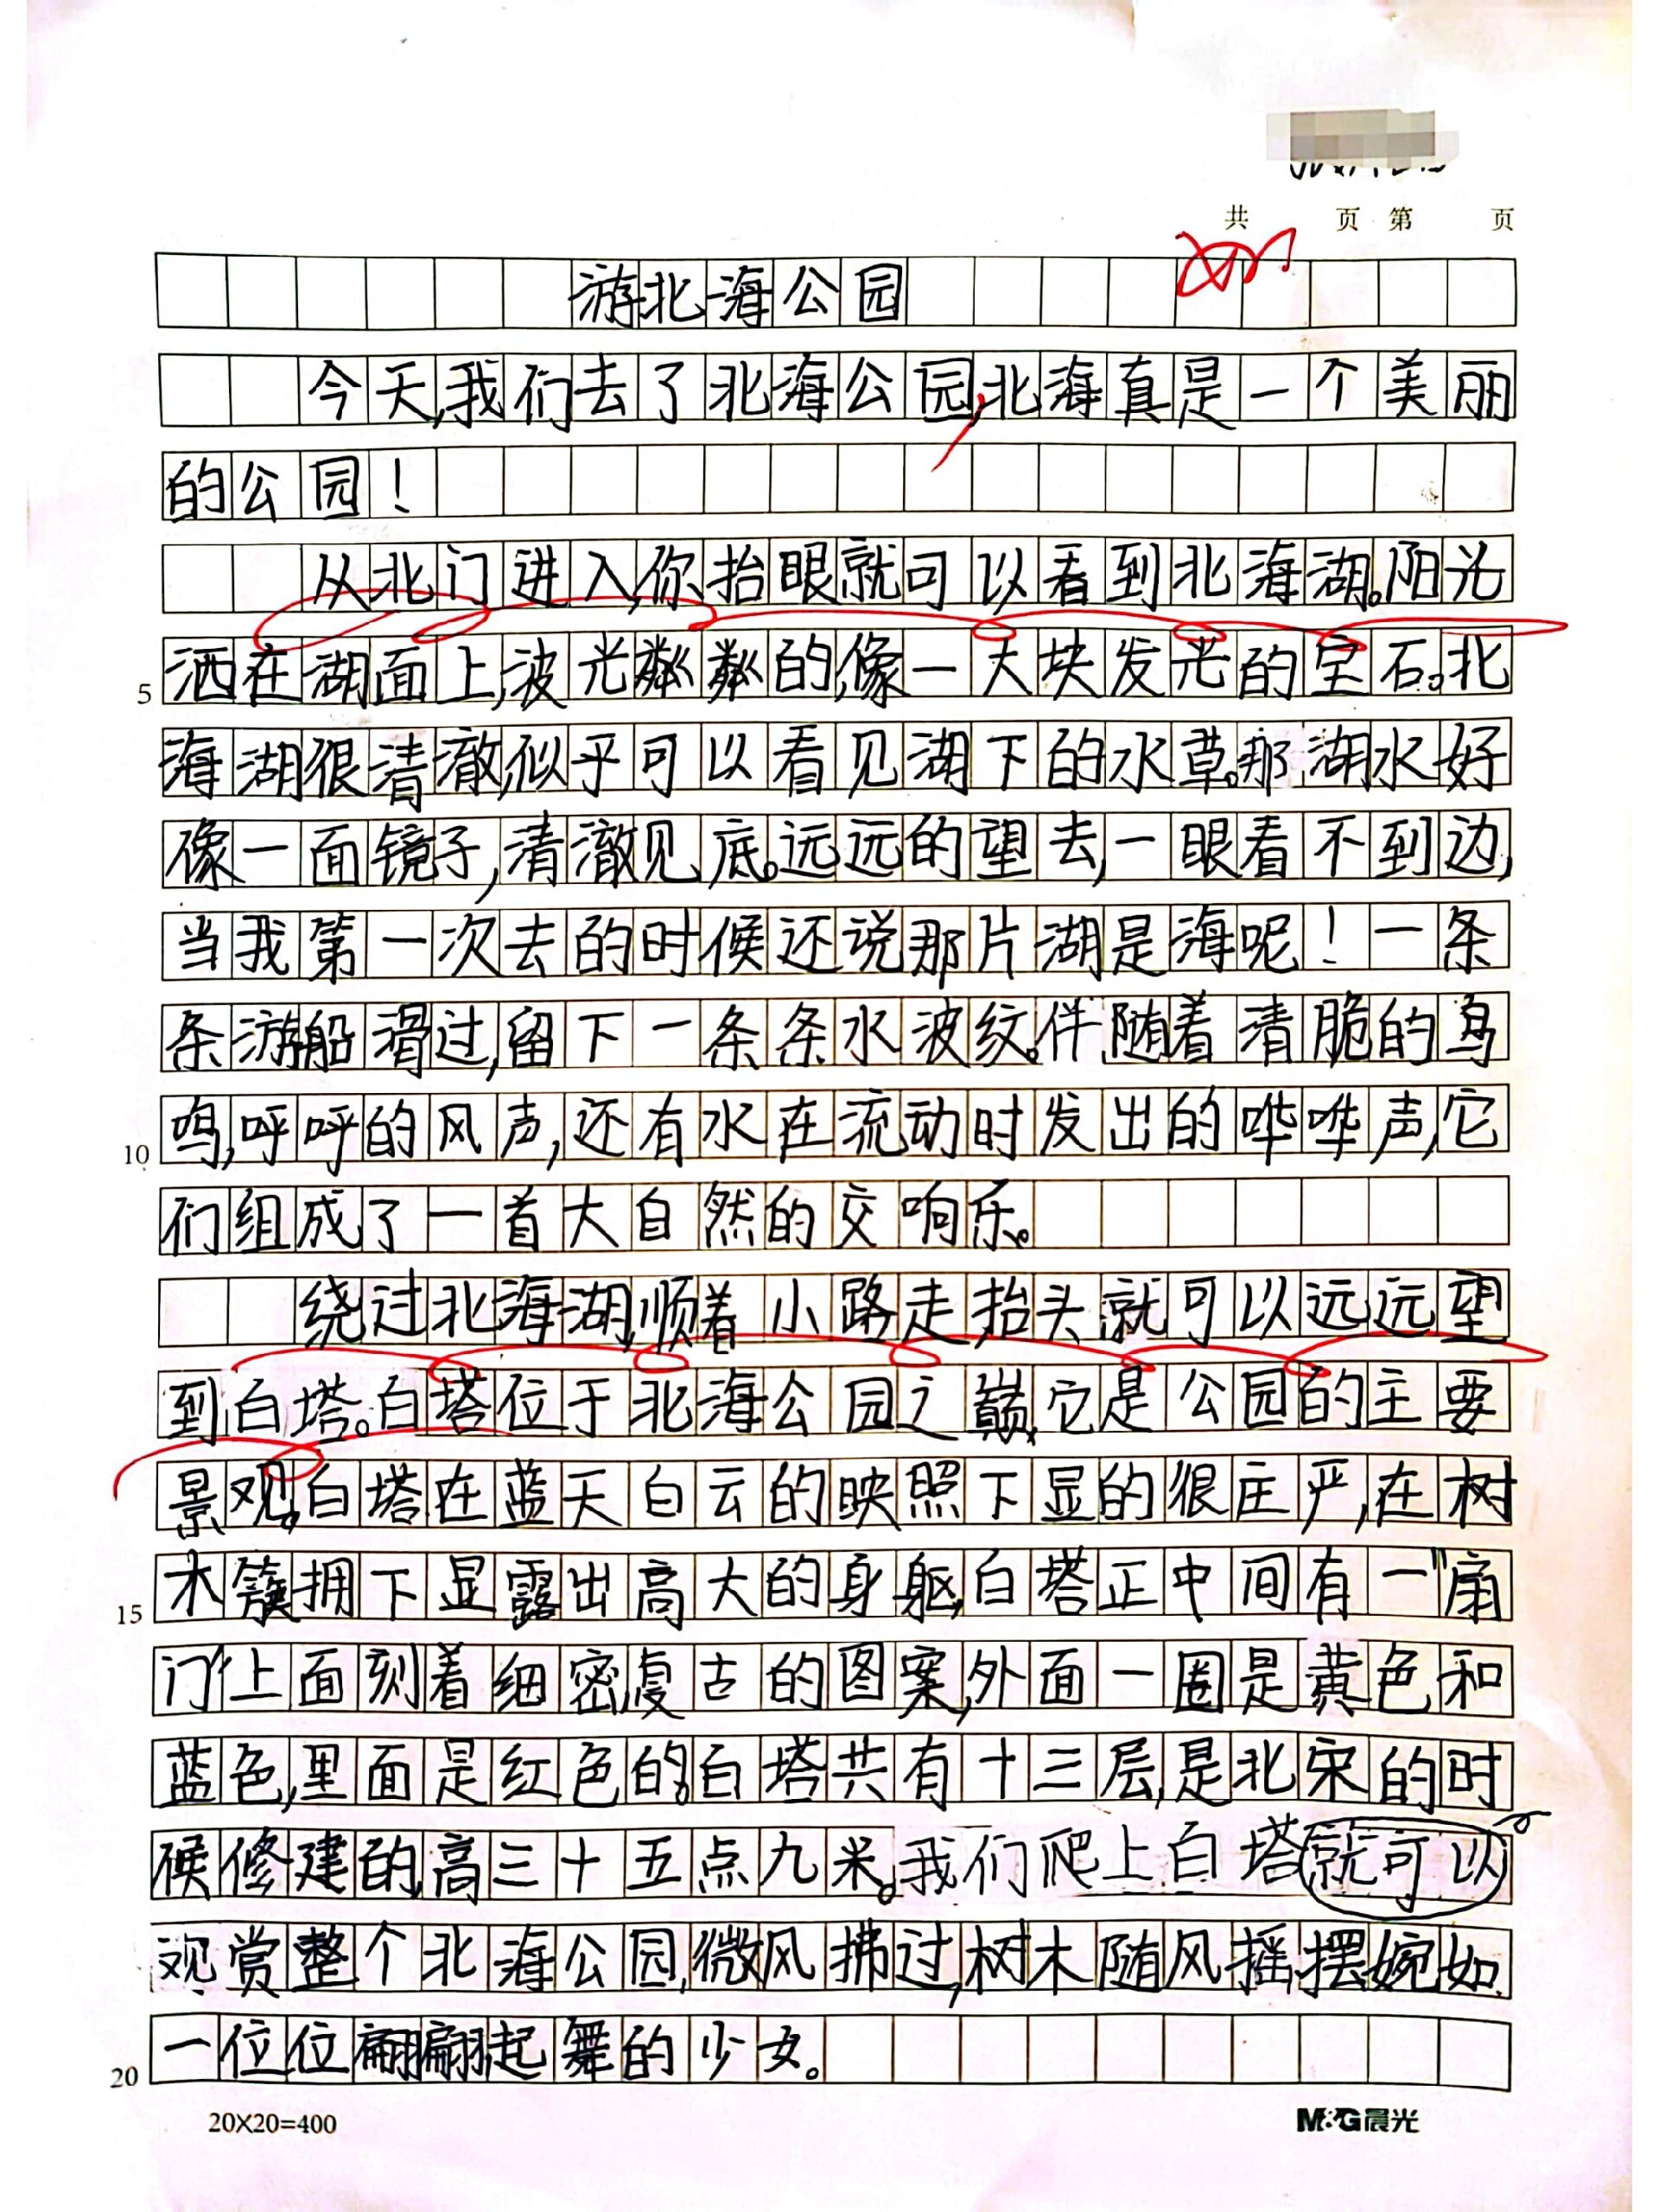 共 页 第 页
游北海公园
今天,我们去了北海公园,北海真是一个美丽
的公园!
从北门进入,你抬眼就可以看到北海湖。阳光
洒在湖面上,波光粼粼的,像一大块发光的宝石。北
海湖很清澈,似乎可以看见湖下的水草。那湖水好
像一面镜子,清澈见底。远远的望去,一眼看不到边,
当我第一次去的时候还说那片湖是海呢!一条
条游船滑过,留下一条条水波纹。伴随着清脆的鸟
鸣,呼呼的风声,还有水在流动时发出的哗哗声,它
们组成了一首大自然的交响乐。
绕过北海湖,顺着小路走,抬头就可以远远望
到白塔。白塔位于北海公园之巅,它是公园的主要
景观。白塔在蓝天白云的映照下显的很庄严,在树
木簇拥下显露出高大的身躯,白塔正中间有一"扇
门"上面刻着细密,复古的图案,外面一圈是黄色和
蓝色,里面是红色的。白塔共有十三层,是北宋的时
候修建的,高三十五点九米。我们爬上白塔就可以
观赏整个北海公园,微风拂过,树木随风摇摆,婉如
一位位翩翩起舞的少女。
5
10
15
20
20X20=400
M&G晨光